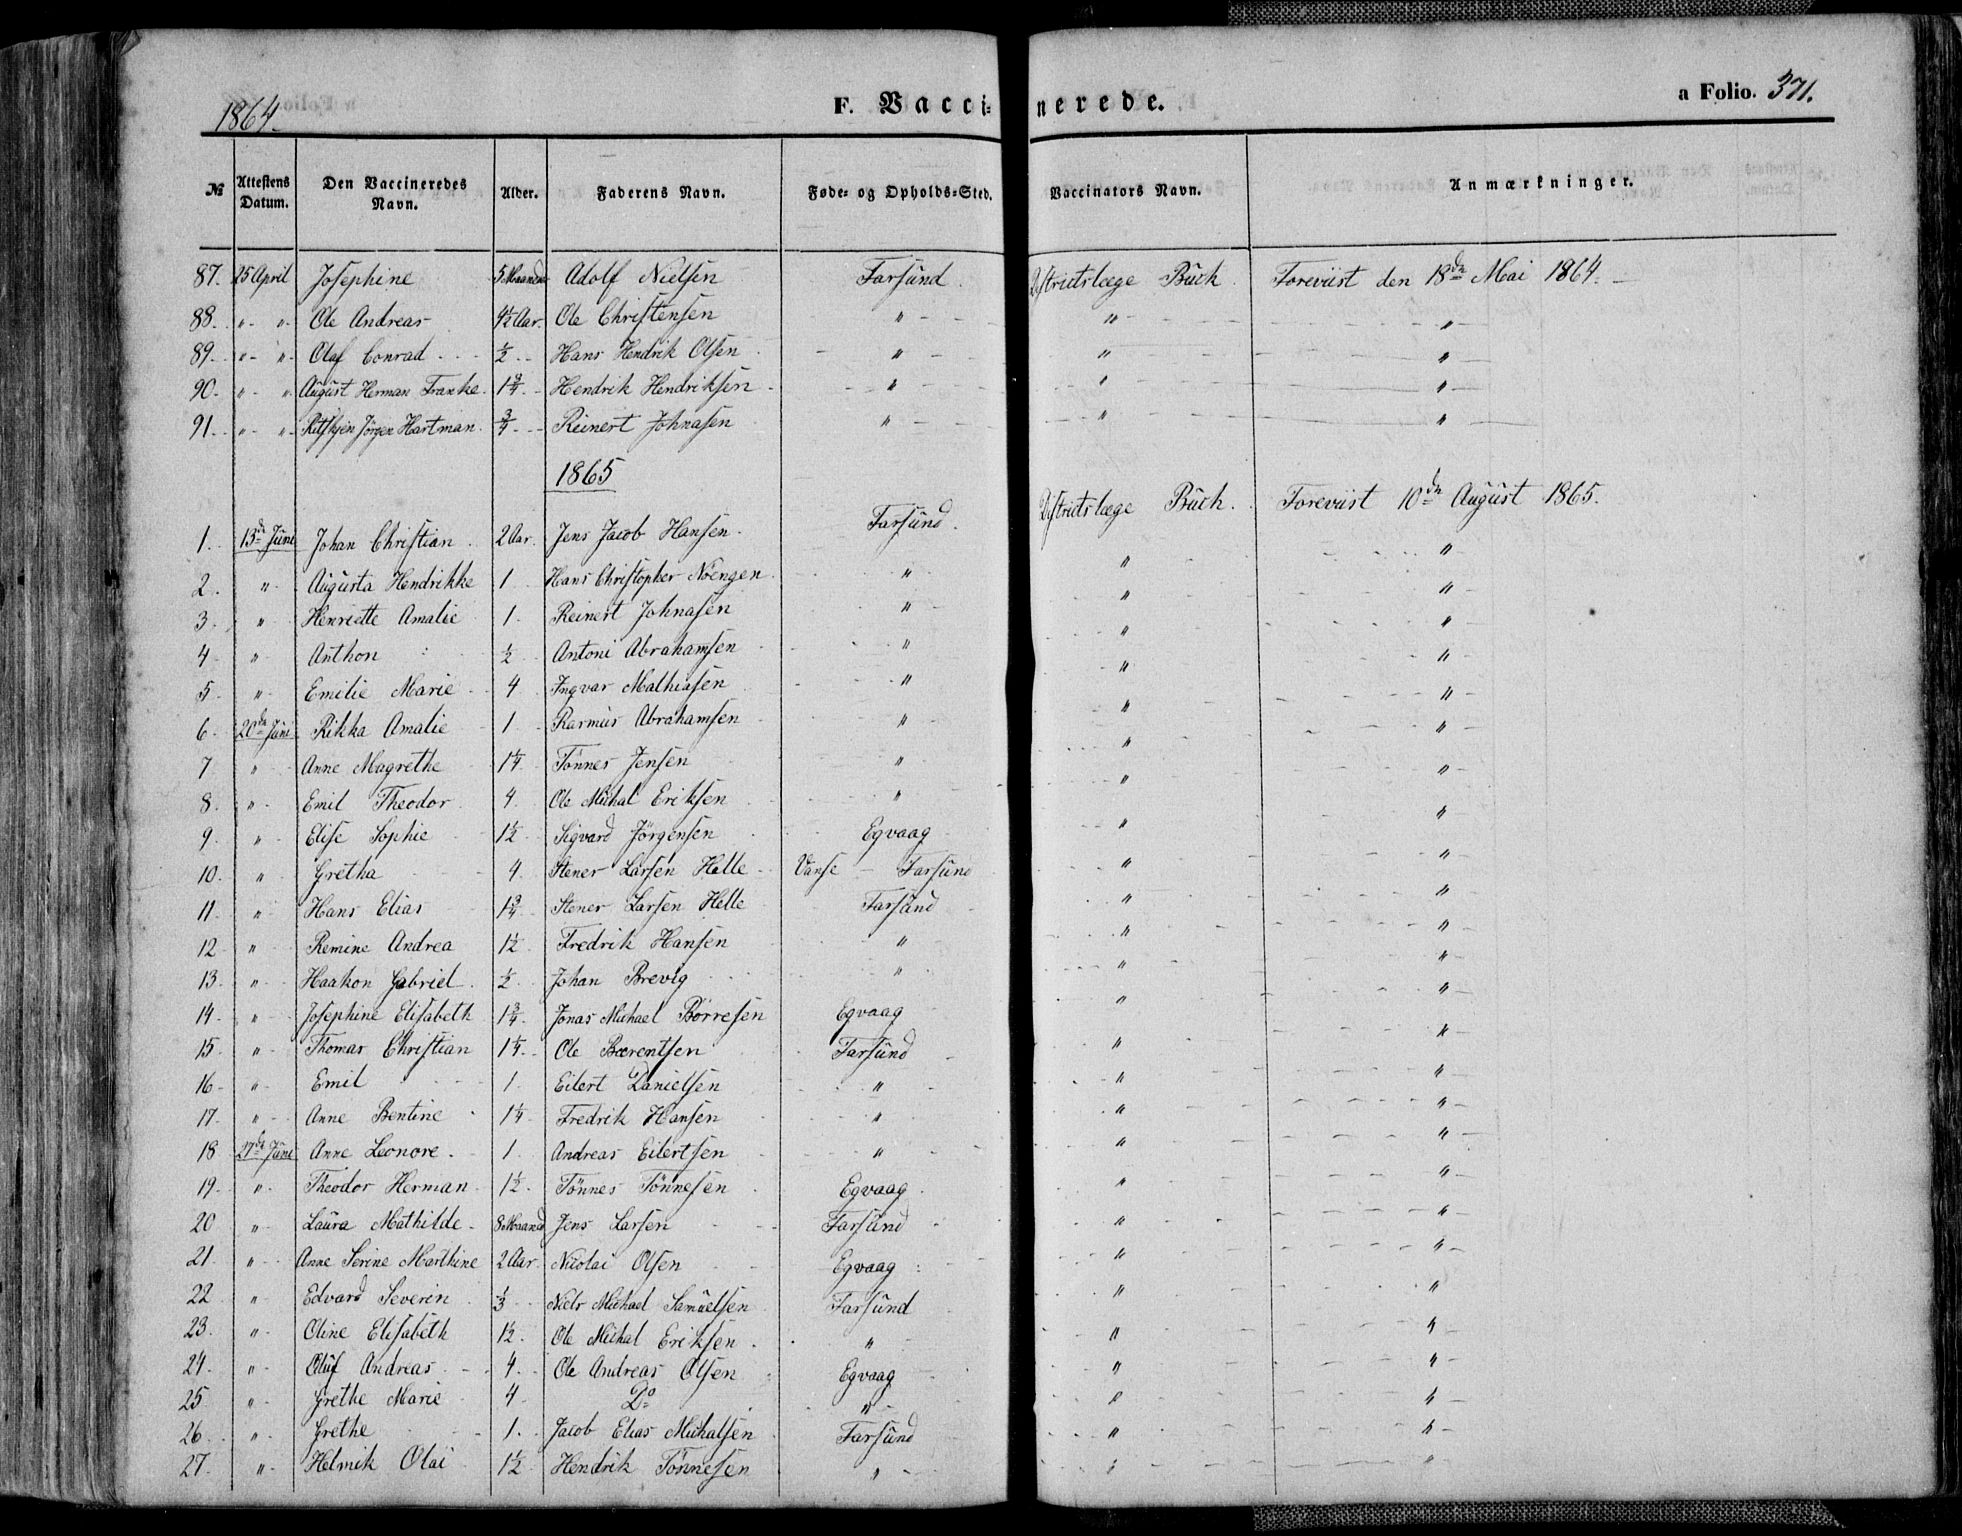 1864.
F. Vaccinerede.
a Folio. 371.
№ | Attestens Datum. | Den Vaccineredes Navn. | Alder. | Faderens Navn. | Føde- og Opholds-Sted. | Vaccinators Navn. | Anmærkninger.
87. 25 April Josephine 5 Maaneder Adolf Nielsen Farsund. Distrietslæge Buch. Foreviist den 18de Mai 1864.
88. " " Ole Andreas 4½ Aar. Ole Christensen " " "
89. " " Olaf Conrad ½ Hans Hendrik Olsen " " "
90. " " August Herman Franke 1¾ Hendrik Hendriksen " " "
91. " " Jörgen Hartman ¾ Reinert Johnasen " " "
1865
1. 13de Juni Johan Christian 2 Aar. Jens Jacob Hansen. Farsund. Distrietslæge Buch. Foreviist 10de August 1865.
2. " Augusta Hendrikke 1 Hans Christopher Nöengen " " "
3. " Henriette Amalie 1. Reinert Johnasen " " "
4 " Anthon ½ Antoni Abrahamsen " " "
5. " Emilie Marie 4 Ingvar Mathiasen " " "
6. 20de Juni Rikka Amalie 1 Rasmus Abrahamsen " " "
7 " Anne Magrethe 1¼ Tönnes Jensen " " "
8. " Emil Theodor 4 Ole Michal Eriksen " " "
9. " Elise Sophie 1½ Sigvard Jörgensen Egvaag " "
10. " Gretha 4. Stener Larsen Helle Vanse - Farsund " "
11 " Hans Elias 1¾ Stener Larsen Helle Farsund " "
12 " Remine Andrea 1½ Fredrik Hansen " " "
13. " Haakon Gabriel ½ Johan Brevig " " "
14. " Josephine Elisabeth 1¾ Jonas Michael Börresen Egvaag " "
15. " Thomas Christian 1¼ Ole Bærentsen Farsund " "
16 " Emil 1. Eilert Danielsen " " "
17. " Anne Bentine 1¼ Fredrik Hansen " " "
18 27de Juni Anne Leonore. 1. Andreas Eilertsen " " "
19. " Theodor Herman 1½ Tönnes Tönnesen Egvaag " "
20 " Laura Mathilde 8 Maaned Jens Larsen Farsund " "
21. " Anne Serine Marthine 2 Aar. Nicolai Olsen Egvaag " "
22 " Edvard Severin ⅓ Niels Michael Samuelsen Farsund " "
23. " Oline Elisabeth 1½ Ole Michal Eriksen " " "
24. " Oluf Andreas 4. Ole Andreas Olsen Egvaag " "
25 " Grethe Marie 4 Do " " "
26. " Grethe 1. Jacob Elias Michalsen Farsund " "
27. " Helmik Olai 1½ Hendrik Tönnesen " " "